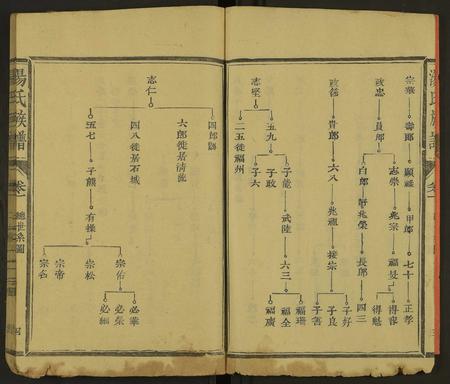 宗華 壽郎 顯綫 甲郎 七十 正孝
政忠 員郎 志崇 兆宗 福旻 得容
得魁
白郎 兆榮 長郎 四三
政信 貴郎 六八 兆福 接崇 子好
子良
子善
志堅 五九 子龍 武陸 六三 福珊
福全
福廣
子政
子六
二五徙福州
湯氏族譜 卷一
志仁 四郎縣
六郎徙居清流
四八徙居石城
五七 子熊 有操 宗佑 必華
必榮
必細
宗松
宗帝
宗名
湯氏族譜 卷一 總世系圖 四